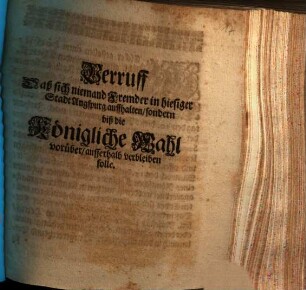 Verruff
Daß sich niemand Frembder in hiesiger
Stadt Augspurg auffhalten/sondern
biß die
Königliche Wahl
vorüber/ausserhalb verbleiben
solle.